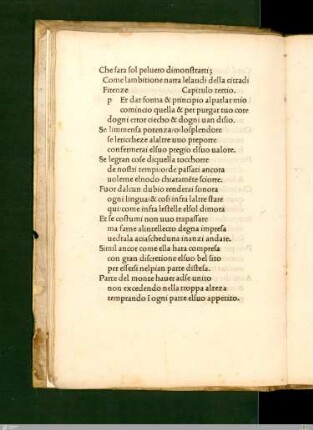 Che sara sol peluero dimonstrarti;
Come lambitione narra lelaudi della cittadi
Firenze Capitulo tertio.
p Er dar forma & principio alparlar mio
comincio quella & per purgar tuo core
dogni error ciecho & dogni uan disio.
Se limmensa potenza/o losplendore
se lericcheze alaltre uuo preporre
confermerai elsuo pregio elsuo ualore.
Se legran cose diquella tocchorre
de nostri tempi/o de passati ancora
uolerne elnodo chiaramēte sciorre.
Fuor dalcun dubio renderai sonora
ogni lingua: & cosi infra laltre stare
qui/come infra lestelle elsol dimora
Et se costumi non uuo trapassare
ma farne alintellecto degna impresa
uedrala aciascheduna inanzi andare.
Simil ancor come ella hara compresa
con gran discretione elsuo bel sito
per essersi nelpian parte distesa.
Parte del monte hauer adse unito
non excedendo nella troppa alteza
temprando ī ogni parte elsuo appetito.